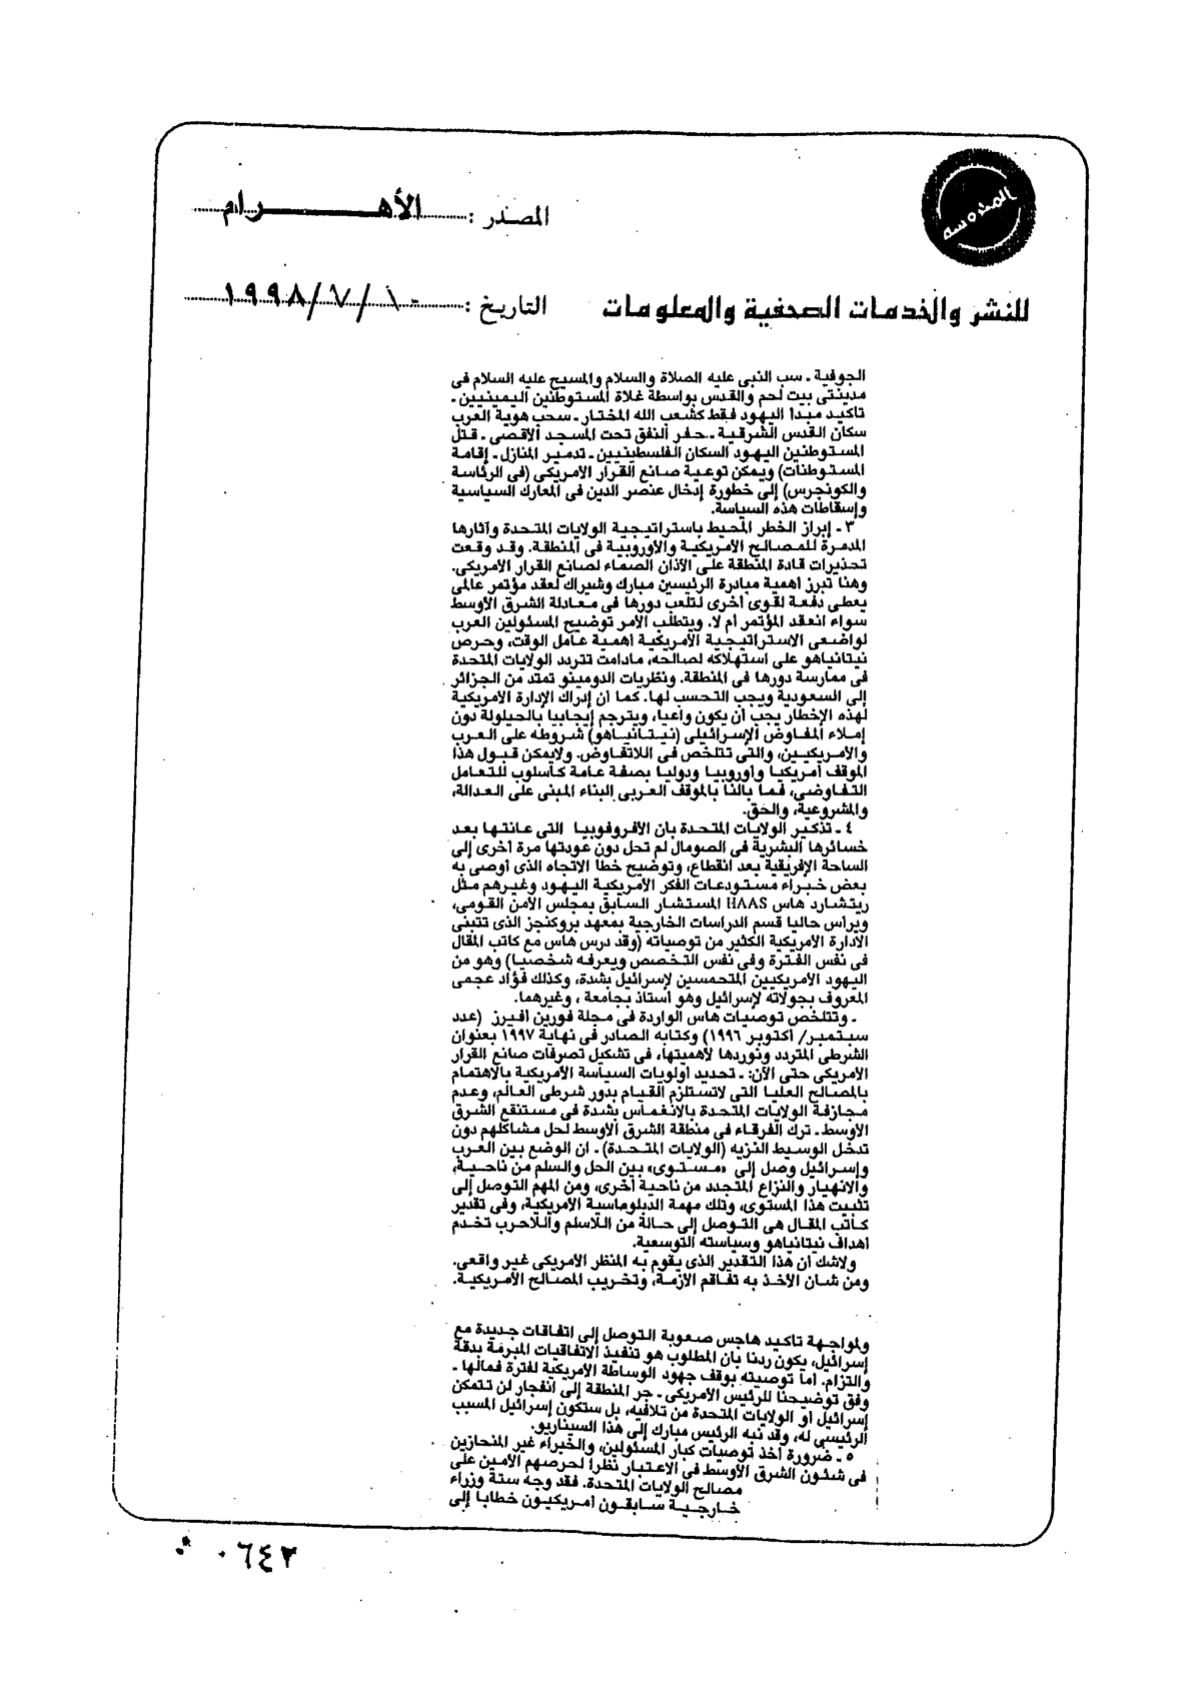 المصدر : الأهـــرام
التاريخ : ١٩٩٨/٧/١٠
للنشر والخدمات الصحفية والمعلومات
الجوفية ـ سب النبى عليه الصلاة والسلام والمسيح عليه السلام فى
مدينتى بيت لحم والقدس بواسطة غلاة المستوطنين اليمينيين ـ
تاكيد مبدا اليهود فقط كشعب الله المختار ـ سحب هوية العرب
سكان القدس الشرقية ـ حفر النفق تحت المسجد الاقصى ـ قتل
المستوطنين اليهود السكان الفلسطينيين ـ تدمير المنازل ـ إقامة
المستوطنات) ويمكن توعية صانع القرار الامريكى (فى الرئاسة
والكونجرس) إلى خطورة إدخال عنصر الدين فى المعارك السياسية
وإسقاطات هذه السياسة.
٣ ـ إبراز الخطر المحيط باستراتيجية الولايات المتحدة وآثارها
المدمرة للمصالح الامريكية والأوروبية فى المنطقة. وقد وقعت
تحذيرات قادة المنطقة على الآذان الصماء لصانع القرار الامريكى.
وهنا تبرز اهمية مبادرة الرئيسين مبارك وشيراك لعقد مؤتمر عالمى
يعطى دفعة لقوى أخرى لتلعب دورها فى معادلة الشرق الأوسط
سواء انعقد المؤتمر أم لا. ويتطلب الأمر توضيح المسئولين العرب
لواضعى الاستراتيجية الأمريكية اهمية عامل الوقت، وحرص
نيتانياهو على استهلاكه لصالحه، مادامت تتردد الولايات المتحدة
فى ممارسة دورها فى المنطقة. ونظريات الدومينو تمتد من الجزائر
إلى السعودية ويجب التحسب لها. كما ان إدراك الإدارة الامريكية
لهذه الإخطار يجب أن يكون واعيا، ويترجم إيجابيا بالحيلولة دون
إملاء المفاوض الإسرائيلى (نيتانياهو) شروطه على العرب
والامريكيين، والتى تتلخص فى اللاتفاوض. ولايمكن قبول هذا
الموقف أمريكيا وأوروبيا ودوليا بصفة عامة كأسلوب للتعامل
التفاوضى، فما بالنا بالموقف العربى البناء المبنى على العدالة،
والمشروعية، والحق.
٤ ـ تذكير الولايات المتحدة بان الافروفوبيا التى عانتها بعد
خسائرها البشرية فى الصومال لم تحل دون عودتها مرة أخرى إلى
الساحة الإفريقية بعد انقطاع، وتوضيح خطا الاتجاه الذى أوصى به
بعض خبراء مستودعات الفكر الأمريكية اليهود وغيرهم مثل
ريتشارد هاس HAAS المستشار السابق بمجلس الامن القومى،
ويرأس حاليا قسم الدراسات الخارجية بمعهد بروكنجز الذى تتبنى
الادارة الامريكية الكثير من توصياته (وقد درس هاس مع كاتب المقال
فى نفس الفترة وفى نفس التخصص ويعرفه شخصيا) وهو من
اليهود الأمريكيين المتحمسين لإسرائيل بشدة، وكذلك فؤاد عجمى
المعروف بجولاته لإسرائيل وهو أستاذ بجامعة ، وغيرهما.
ـ وتتلخص توصيات هاس الواردة فى مجلة فورين أفيرز (عدد
سبتمبر/ اكتوبر ١٩٩٦) وكتابه الصادر فى نهاية ١٩٩٧ بعنوان
الشرطى المتردد ونوردها لاهميتها، فى تشكيل تصرفات صانع القرار
الامريكى حتى الآن: ـ تحديد اولويات السياسة الأمريكية بالاهتمام
بالمصالح العليا التى لاتستلزم القيام بدور شرطى العالم، وعدم
مجازفة الولايات المتحدة بالانغماس بشدة فى مستنقع الشرق
الأوسط ـ ترك الفرقاء فى منطقة الشرق الأوسط لحل مشاكلهم دون
تدخل الوسيط النزيه (الولايات المتحدة) ـ ان الوضع بين العرب
وإسرائيل وصل إلى «مستوى» بين الحل والسلم من ناحية،
والانهيار والنزاع المتجدد من ناحية أخرى، ومن المهم التوصل إلى
تثبيت هذا المستوى، وتلك مهمة الدبلوماسية الأمريكية، وفى تقدير
كاتب المقال هى التوصل إلى حالة من اللاسلم واللاحرب تخدم
أهداف نيتانياهو وسياسته التوسعية.
ولاشك ان هذا التقدير الذى يقوم به المنظر الأمريكى غير واقعى.
ومن شان الأخذ به تفاقم الأزمة، وتخريب المصالح الأمريكية.
ولمواجهة تاكيد هاجس صعوبة التوصل إلى اتفاقات جديدة مع
إسرائيل، يكون ردنا بان المطلوب هو تنفيذ الاتفاقيات المبرمة بدقة
والتزام. أما توصيته بوقف جهود الوساطة الأمريكية لفترة فمالها ـ
وفق توضيحنا للرئيس الأمريكى ـ جر المنطقة إلى انفجار لن تتمكن
إسرائيل أو الولايات المتحدة من تلافيه، بل ستكون إسرائيل المسبب
الرئيسى له، وقد نبه الرئيس مبارك إلى هذا السيناريو.
٥ ـ ضرورة أخذ توصيات كبار المسئولين، والخبراء غير المنحازين
فى شئون الشرق الأوسط فى الاعتبار نظرا لحرصهم الأمين على
مصالح الولايات المتحدة. فقد وجه ستة وزراء
خارجية سابقون أمريكيون خطابا إلى
٠٦٤٢